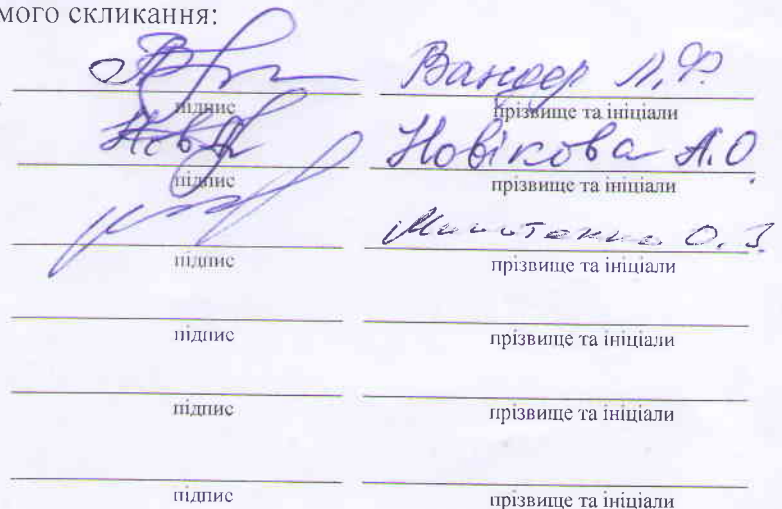 мого скликання:
Вандер Л.Ф.
підпис прізвище та ініціали
Новікова А.О.
підпис прізвище та ініціали
О.
підпис прізвище та ініціали
підпис прізвище та ініціали
підпис прізвище та ініціали
підпис прізвище та ініціали